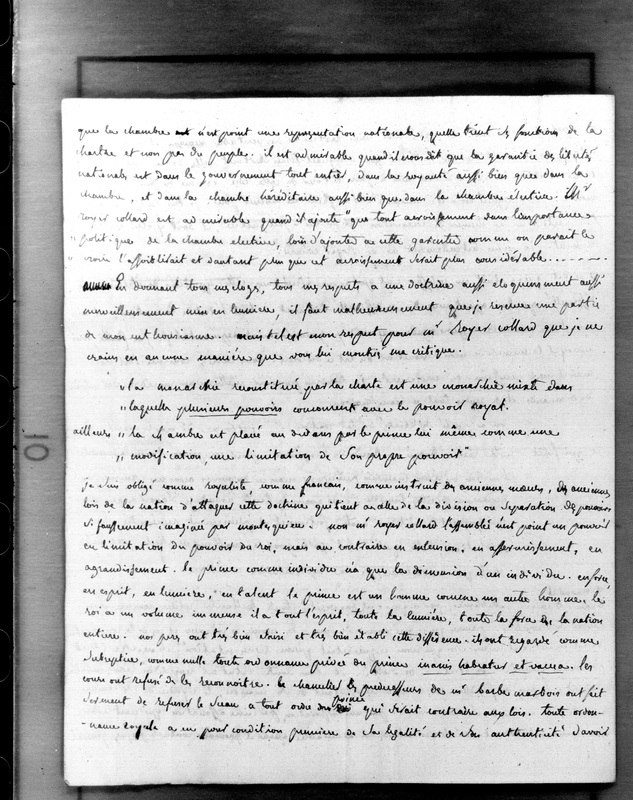 que la chambre n'est point une representation nationale, quelle tient ses fonctions de la
chartre et non pas du peuple. il est admirable quand il vous dit que la garantie des libertés
nationales est dans le gouvernement tout entier, dans la royauté aussi bien que dans la
chambre, et dans la chambre héréditaire aussi bien que dans la chambre élective. Mr
royer collard est admirable quand il ajoute "que tout accroissement dans l'importance
" politique de la chambre elective, loin d'ajouter a cette garantie comme on parait le
" croire l'affoiblirait et dautant plus que cet accroissement serait plus considérable......
En donnant tous mes eloges, tous mes respects a une doctrine aussi eloquemment aussi
merveilleusement mise en lumiere, il faut malheureusement que je reserve une partie
de mon enthousiasme. mais tel est mon respect pour mr royer collard que je ne
crains en aucune maniére que vous lui montriés ma critique.
" la monarchie reconstituée par la charte est une monarchie mixte dans
" laquelle plusieurs pouvoirs concourent avec le pouvoir royal.
ailleurs " la chambre est placée au dedans par le prince lui même comme une
" modification, une limitation de son propre pouvoir"
je suis obligé comme royaliste, comme français, comme instruit des anciennes mœurs, des anciennes
lois de la nation d'attaquer cette doctrine qui tient a celle de la division ou separation des pouvoirs
si faussement imaginée par montesquieu. non mr royer collard l'assemblée n'est point un pouvoir
en limitation du pouvoir du roi, mais au contraire en extension, en affermissement, en
agrandissement. le prince comme individu n'a que la dimension d'un individu. en force,
en esprit, en lumiere, en talent le prince est un homme comme un autre homme. le
roi a un volume immense il a tout l'esprit, toute la lumiére, toute la force de la nation
entiere. nos peres ont trés bien saisi et trés bien établi cette difference. ils ont regardé comme
subreptice, comme nulle toute ordonnance privée du prince inanis habeatur et vacua. les
cours ont refusé de les reconnoitre. le chancelier les predecesseurs de mr barbe marbois ont fait
serment de refuser le sceau a tout ordre du prince qui serait contraire aux lois. toute ordon-
-nance royale a eu pour condition premiere de sa legalité et de son authenticité d'avoir
10